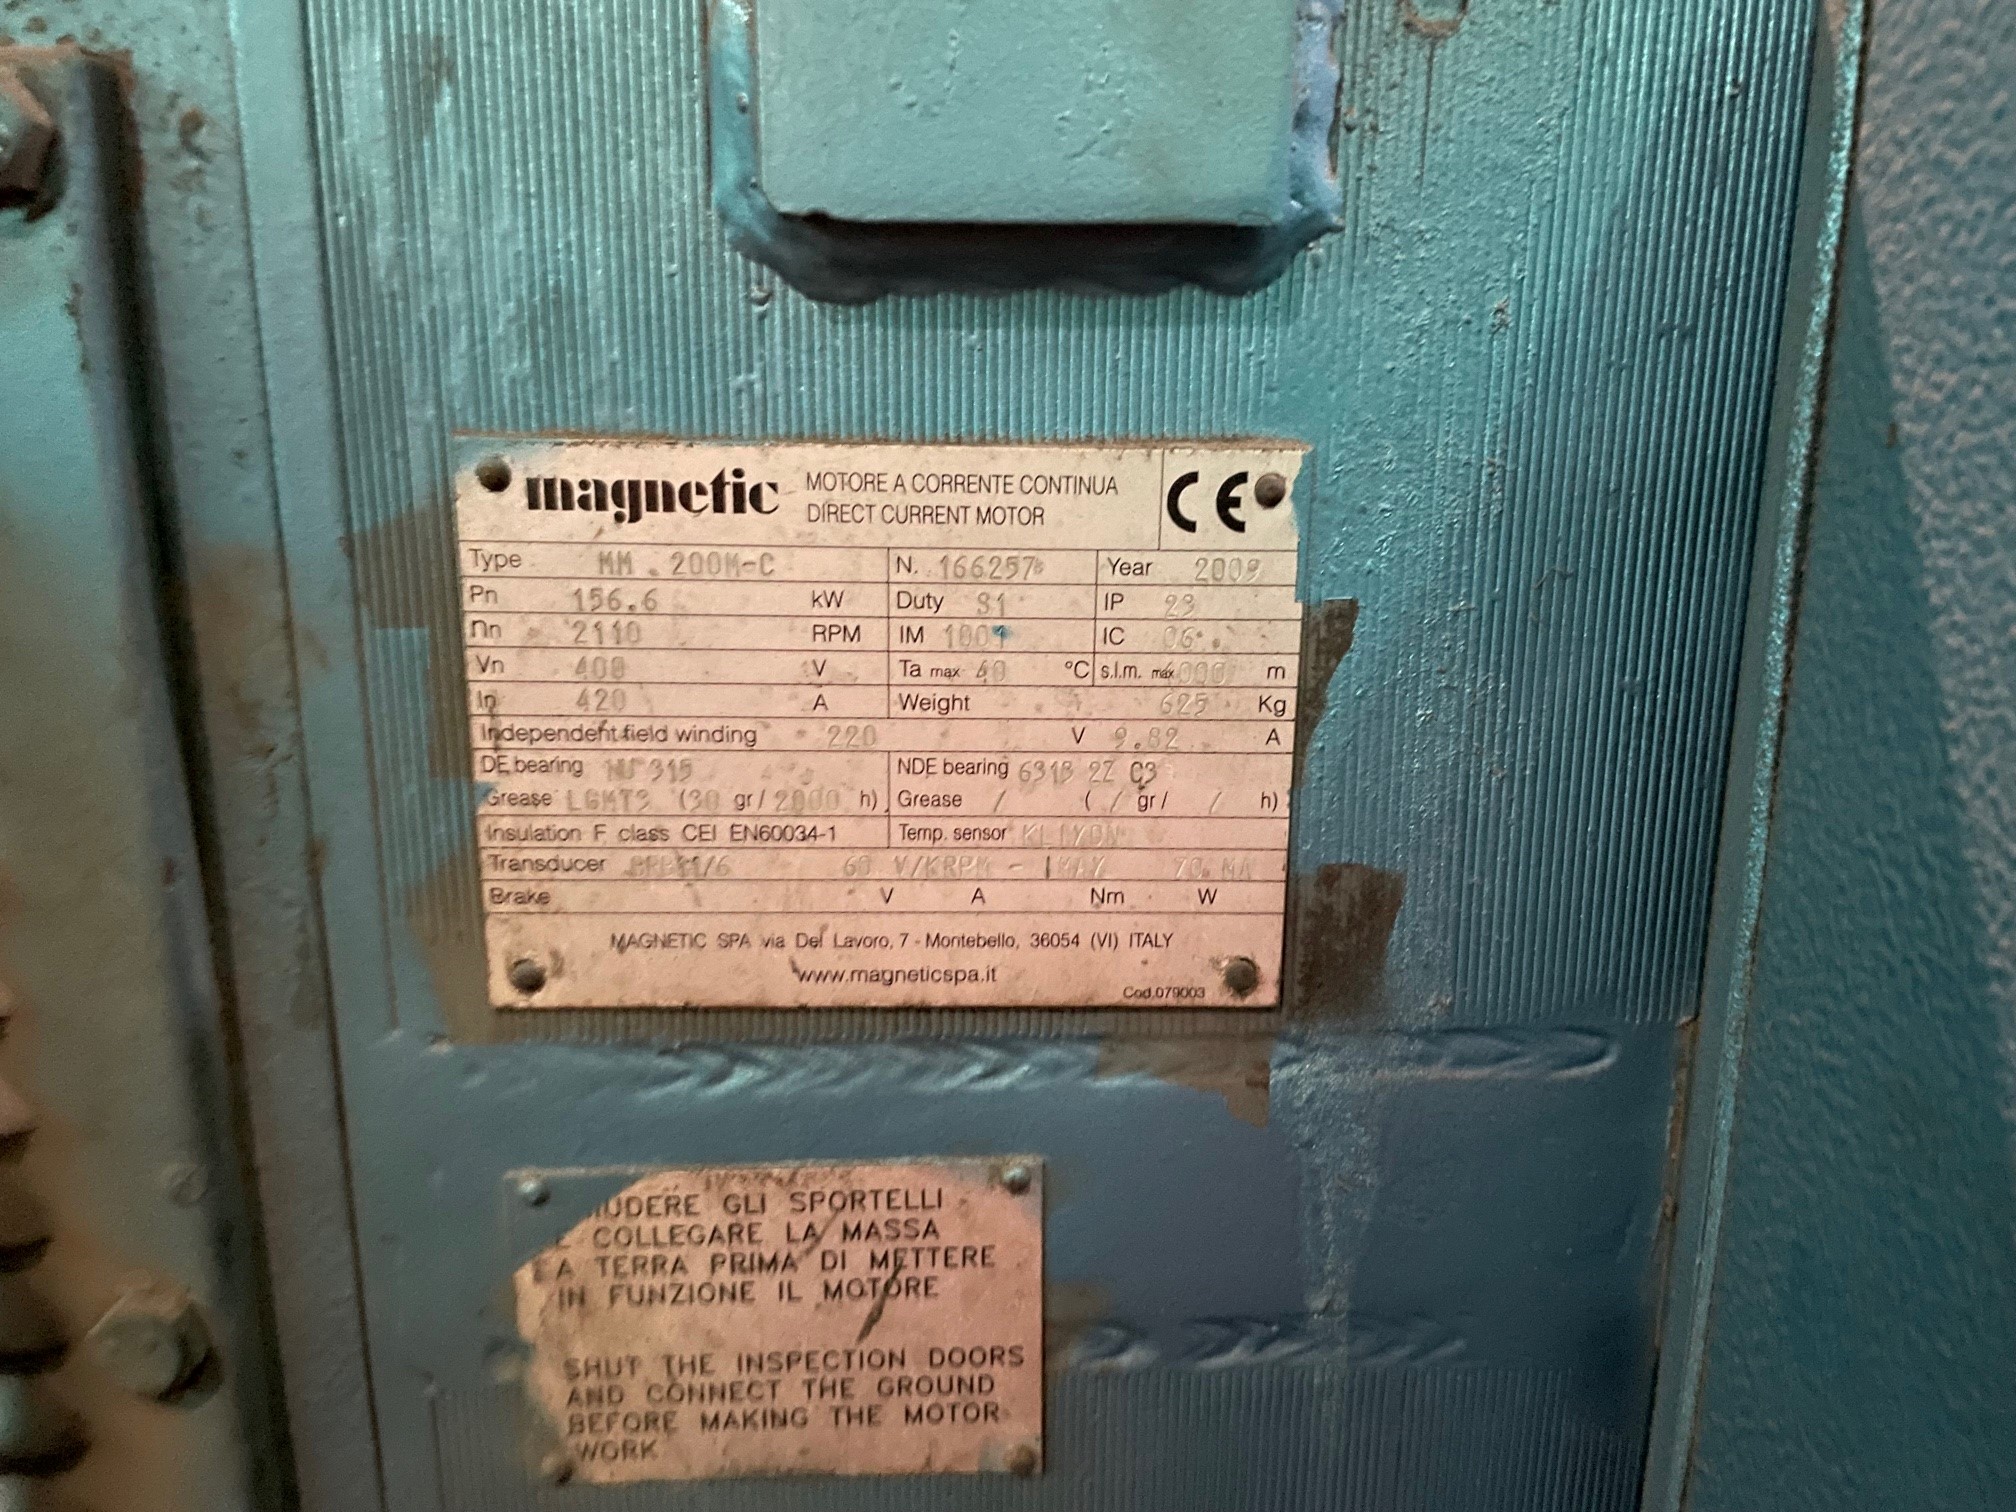 magnetic MOTORE A CORRENTE CONTINUA CE
DIRECT CURRENT MOTOR
Type MM . 200M-C N. 166257 Year 2009
Pn 156.6 kW Duty S1 IP 23
nn 2110 RPM IM 1001 IC 06
Vn 400 V Ta max 40 °C s.l.m. max m
In 420 A Weight 625 Kg
Independent field winding 220 V 9.82 A
DE bearing NU 315 NDE bearing 6313 2Z C3
Grease LGMT3 (30 gr/ 2000 h) Grease / ( / gr/ / h)
Insulation F class CEI EN60034-1 Temp. sensor KLIXON
Transducer 60 V/KRPM - IMAX 70 MA
Brake V A Nm W
MAGNETIC SPA via Del Lavoro, 7 - Montebello, 36054 (VI) ITALY
www.magneticspa.it
Cod.079003
UDERE GLI SPORTELLI
E COLLEGARE LA MASSA
A TERRA PRIMA DI METTERE
IN FUNZIONE IL MOTORE
SHUT THE INSPECTION DOORS
AND CONNECT THE GROUND
BEFORE MAKING THE MOTOR
WORK